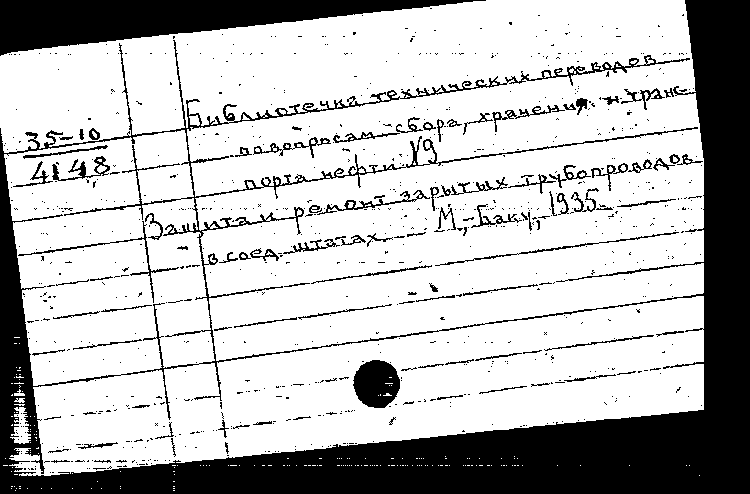 35-10
4148
Библиотечка технических переводов
по вопросам сбора, хранения и транс-
порта нефти №9
Защита и ремонт зарытых трубопроводов
в соед. штатах. М,-Баку, 1935.